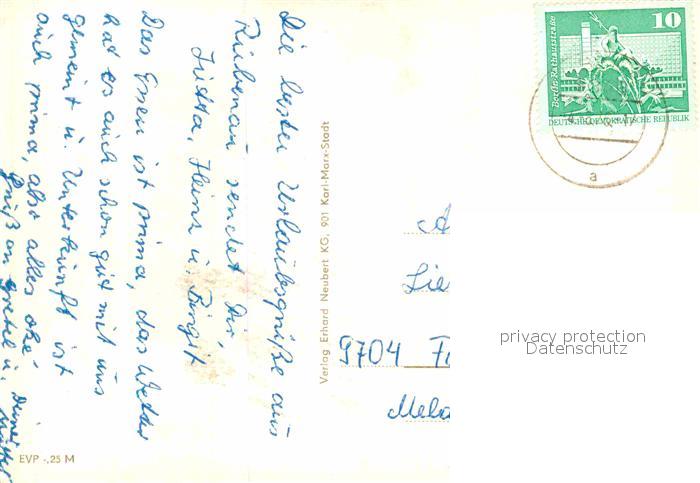 Die besten Urlaubsgrüße aus
Rübenau sendet Dir
Jutta, Heinz u. Birgit
Das Essen ist prima, das Wetter
hat es auch schon gut mit uns
gemeint u. Unterkunft ist
auch prima, also alles oke
Gruß an Gretel u.
Deiner
Mutter
EVP -,25 M
Verlag Erhard Neubert KG, 901 Karl-Marx-Stadt
10
Berlin · Rathausstraße
DEUTSCHE DEMOKRATISCHE REPUBLIK
a
9704
privacy protection
Datenschutz